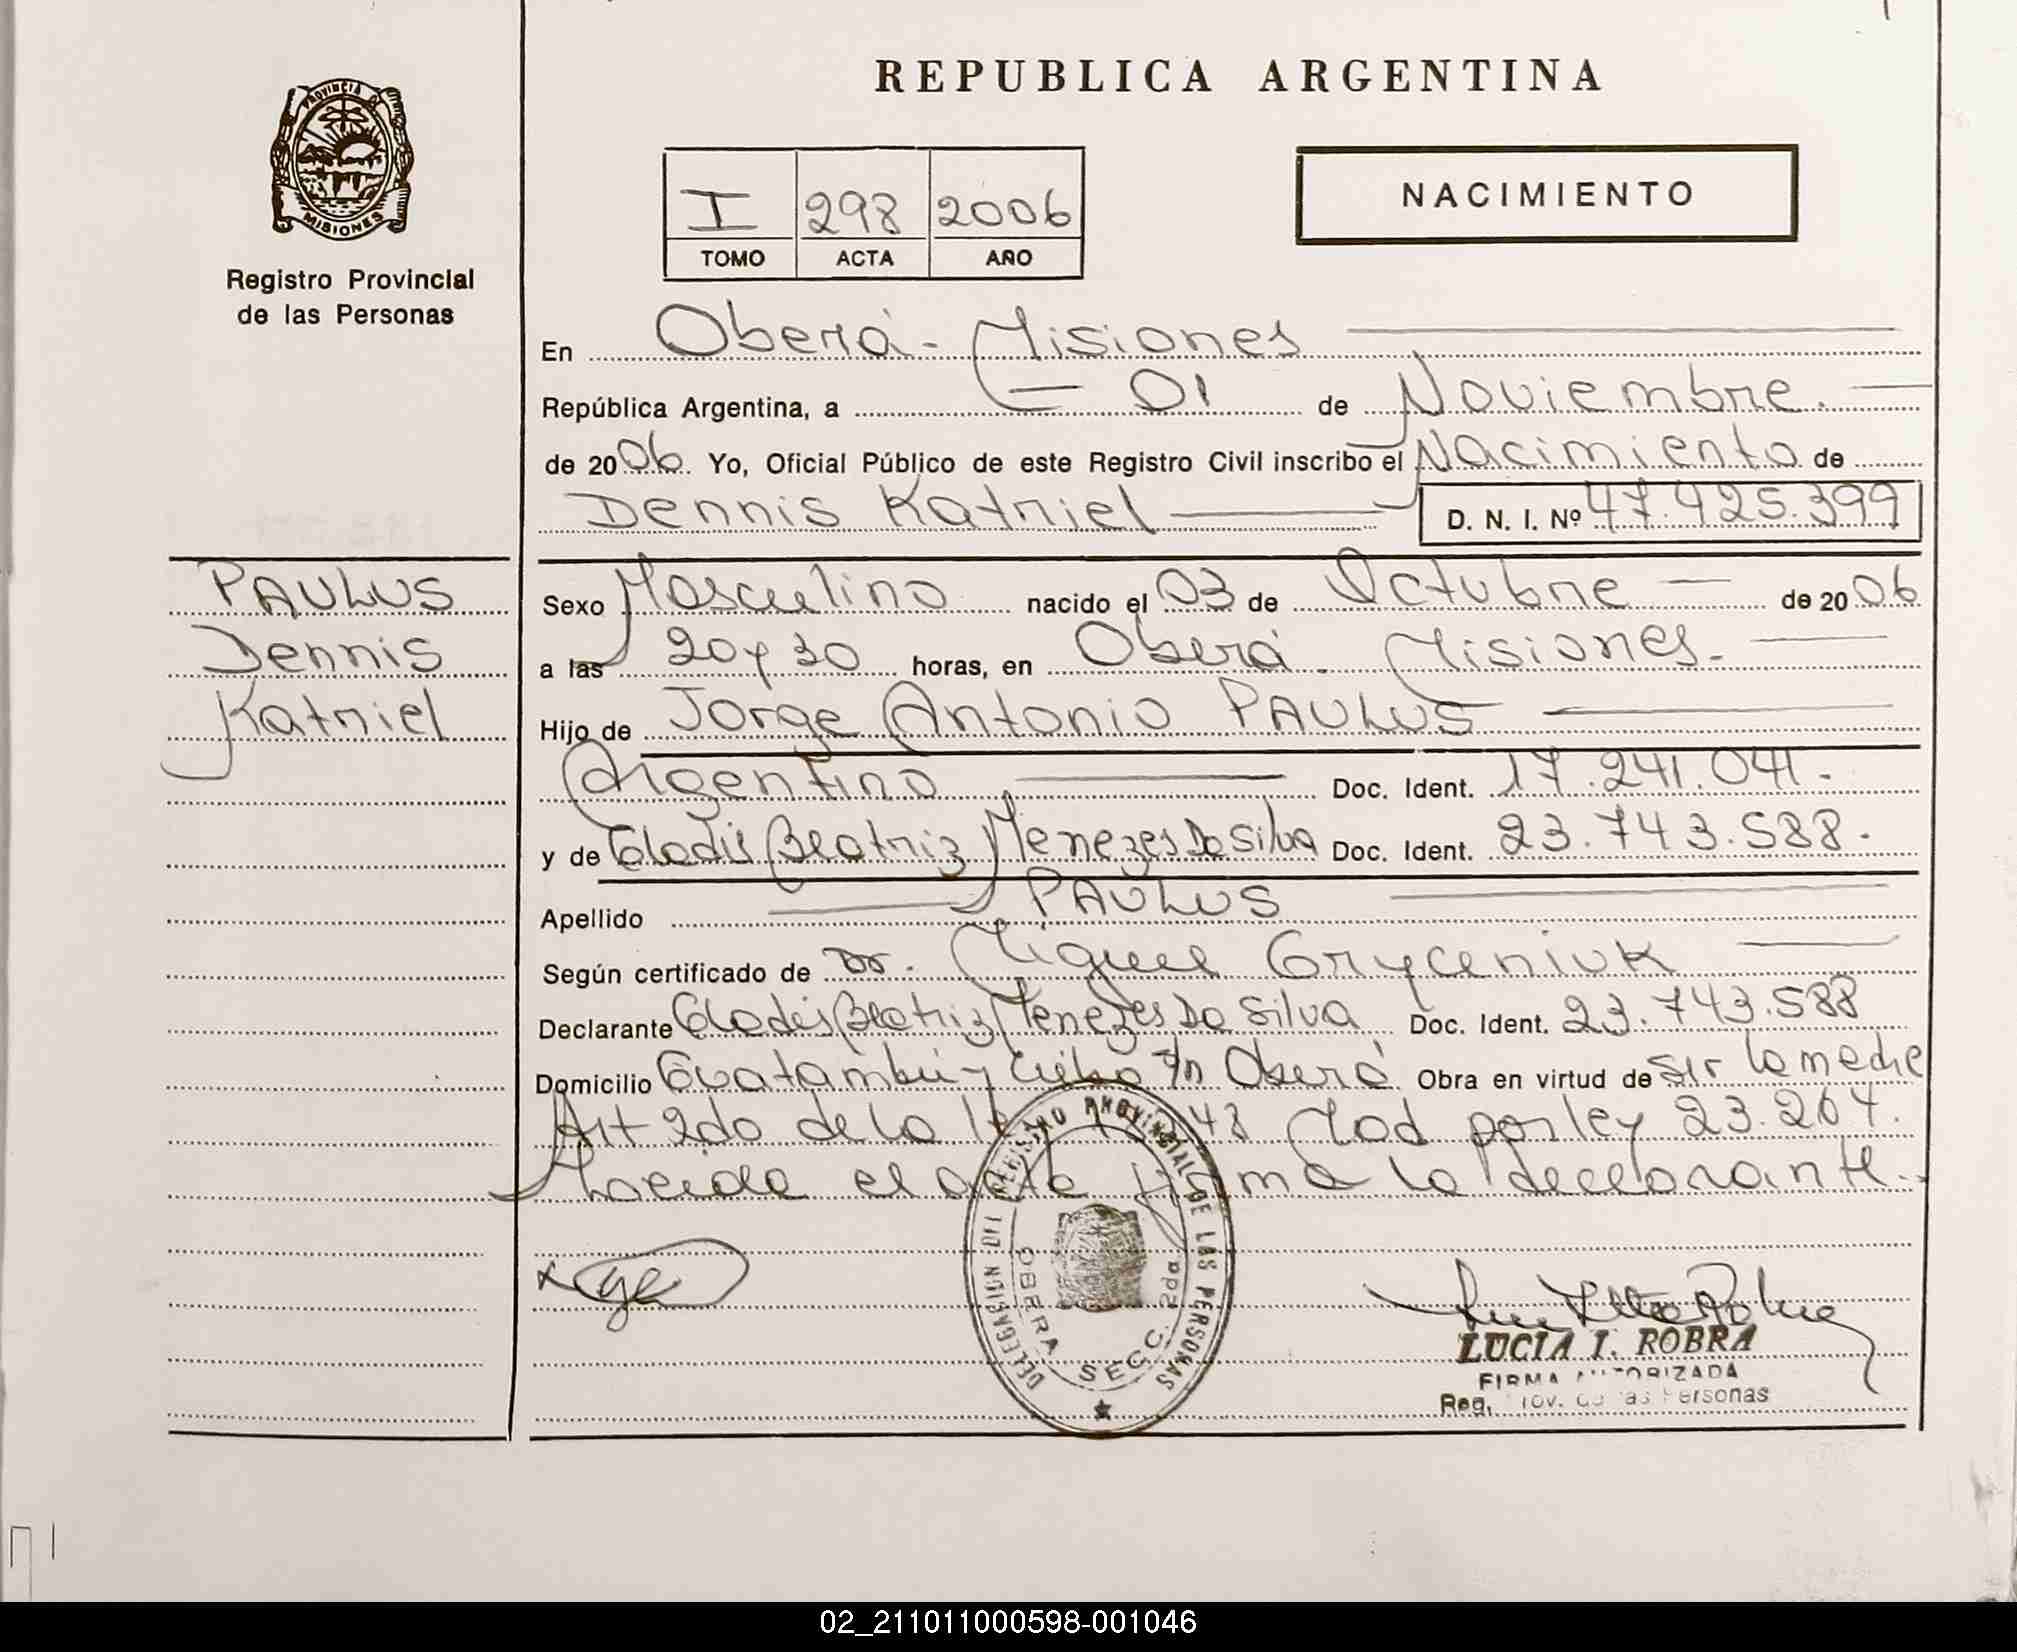 REPUBLICA ARGENTINA
PROVINCIA DE MISIONES
Registro Provincial
de las Personas
I 298 2006
TOMO ACTA AÑO
NACIMIENTO
En Oberá - Misiones
República Argentina, a 01 de Noviembre.
de 2006. Yo, Oficial Público de este Registro Civil inscribo el Nacimiento de
Dennis Katriel D. N. I. Nº 47.425.399
PAULUS
Dennis
Katriel
Sexo Masculino nacido el 03 de Octubre de 2006
a las 20 y 30 horas, en Oberá - Misiones.
Hijo de Jorge Antonio PAULUS
Argentino Doc. Ident. 17.241.041.
y de Gladis Beatriz Menezes Da Silva Doc. Ident. 23.743.588.
Apellido PAULUS
Según certificado de Dr. Miguel Gryceniuk
Declarante Gladis Beatriz Menezes Da Silva Doc. Ident. 23.743.588
Domicilio Guatambú y Ceibo S/n Oberá Obra en virtud de ser la madre
Art 2do de la 48 Mod por ley 23.264.
leída el acta firma la declarante.
DELEGACION DEL REGISTRO PROVINCIAL DE LAS PERSONAS
OBERA SECC. 2da.
LUCIA I. ROBRA
FIRMA AUTORIZADA
Reg. Prov. de las Personas
02_211011000598-001046